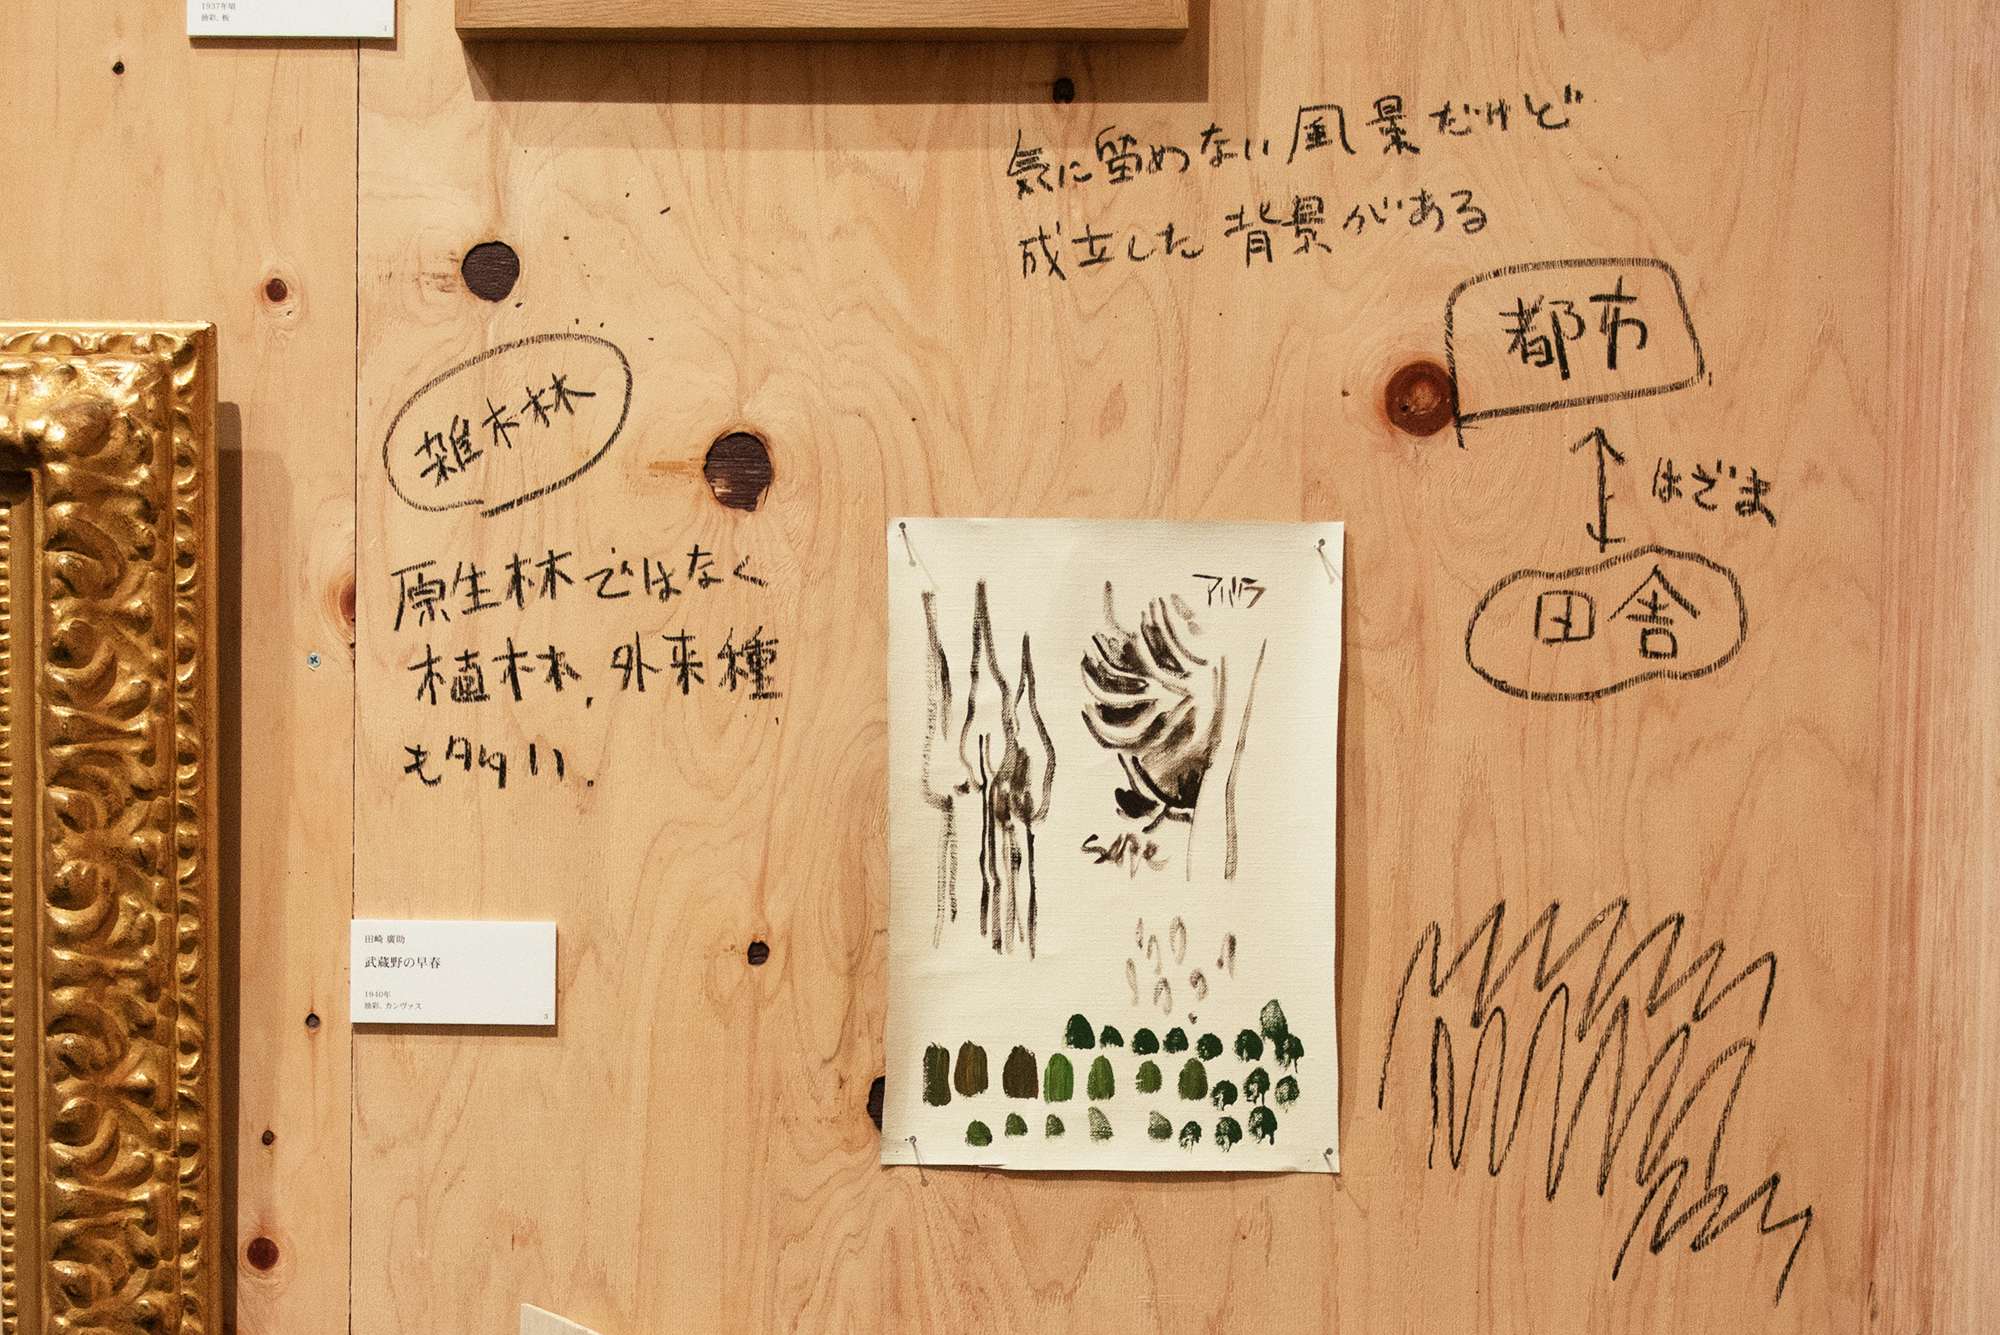 1937年頃
油彩、板
4
気に留めない風景だけど
成立した背景がある
都市
はざま
田舎
雑木林
原生林ではなく
植林、外来種
も多い。
田崎 廣助
武蔵野の早春
1940年
油彩、カンヴァス
3